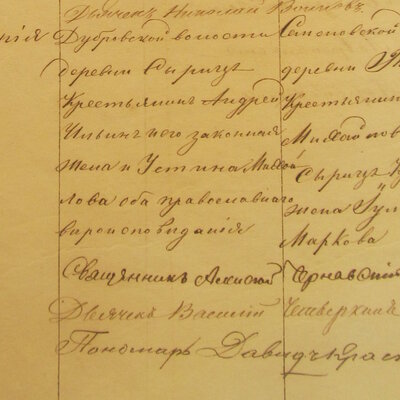 Дьячекъ Николай
нія Дубровской волости Сапоповской
деревни Сырицъ деревни
Крестьянинъ Андрей Крестьянин
Ильинъ и его законная Михайлов
жена Устина Михай Сырицъ
лова оба православнаго жена
вѣроисповѣданія Маркова
Священникъ Алексѣй Чернавскій
Дьячекъ Василій Четверкинъ
Пономарь Давидъ Крас